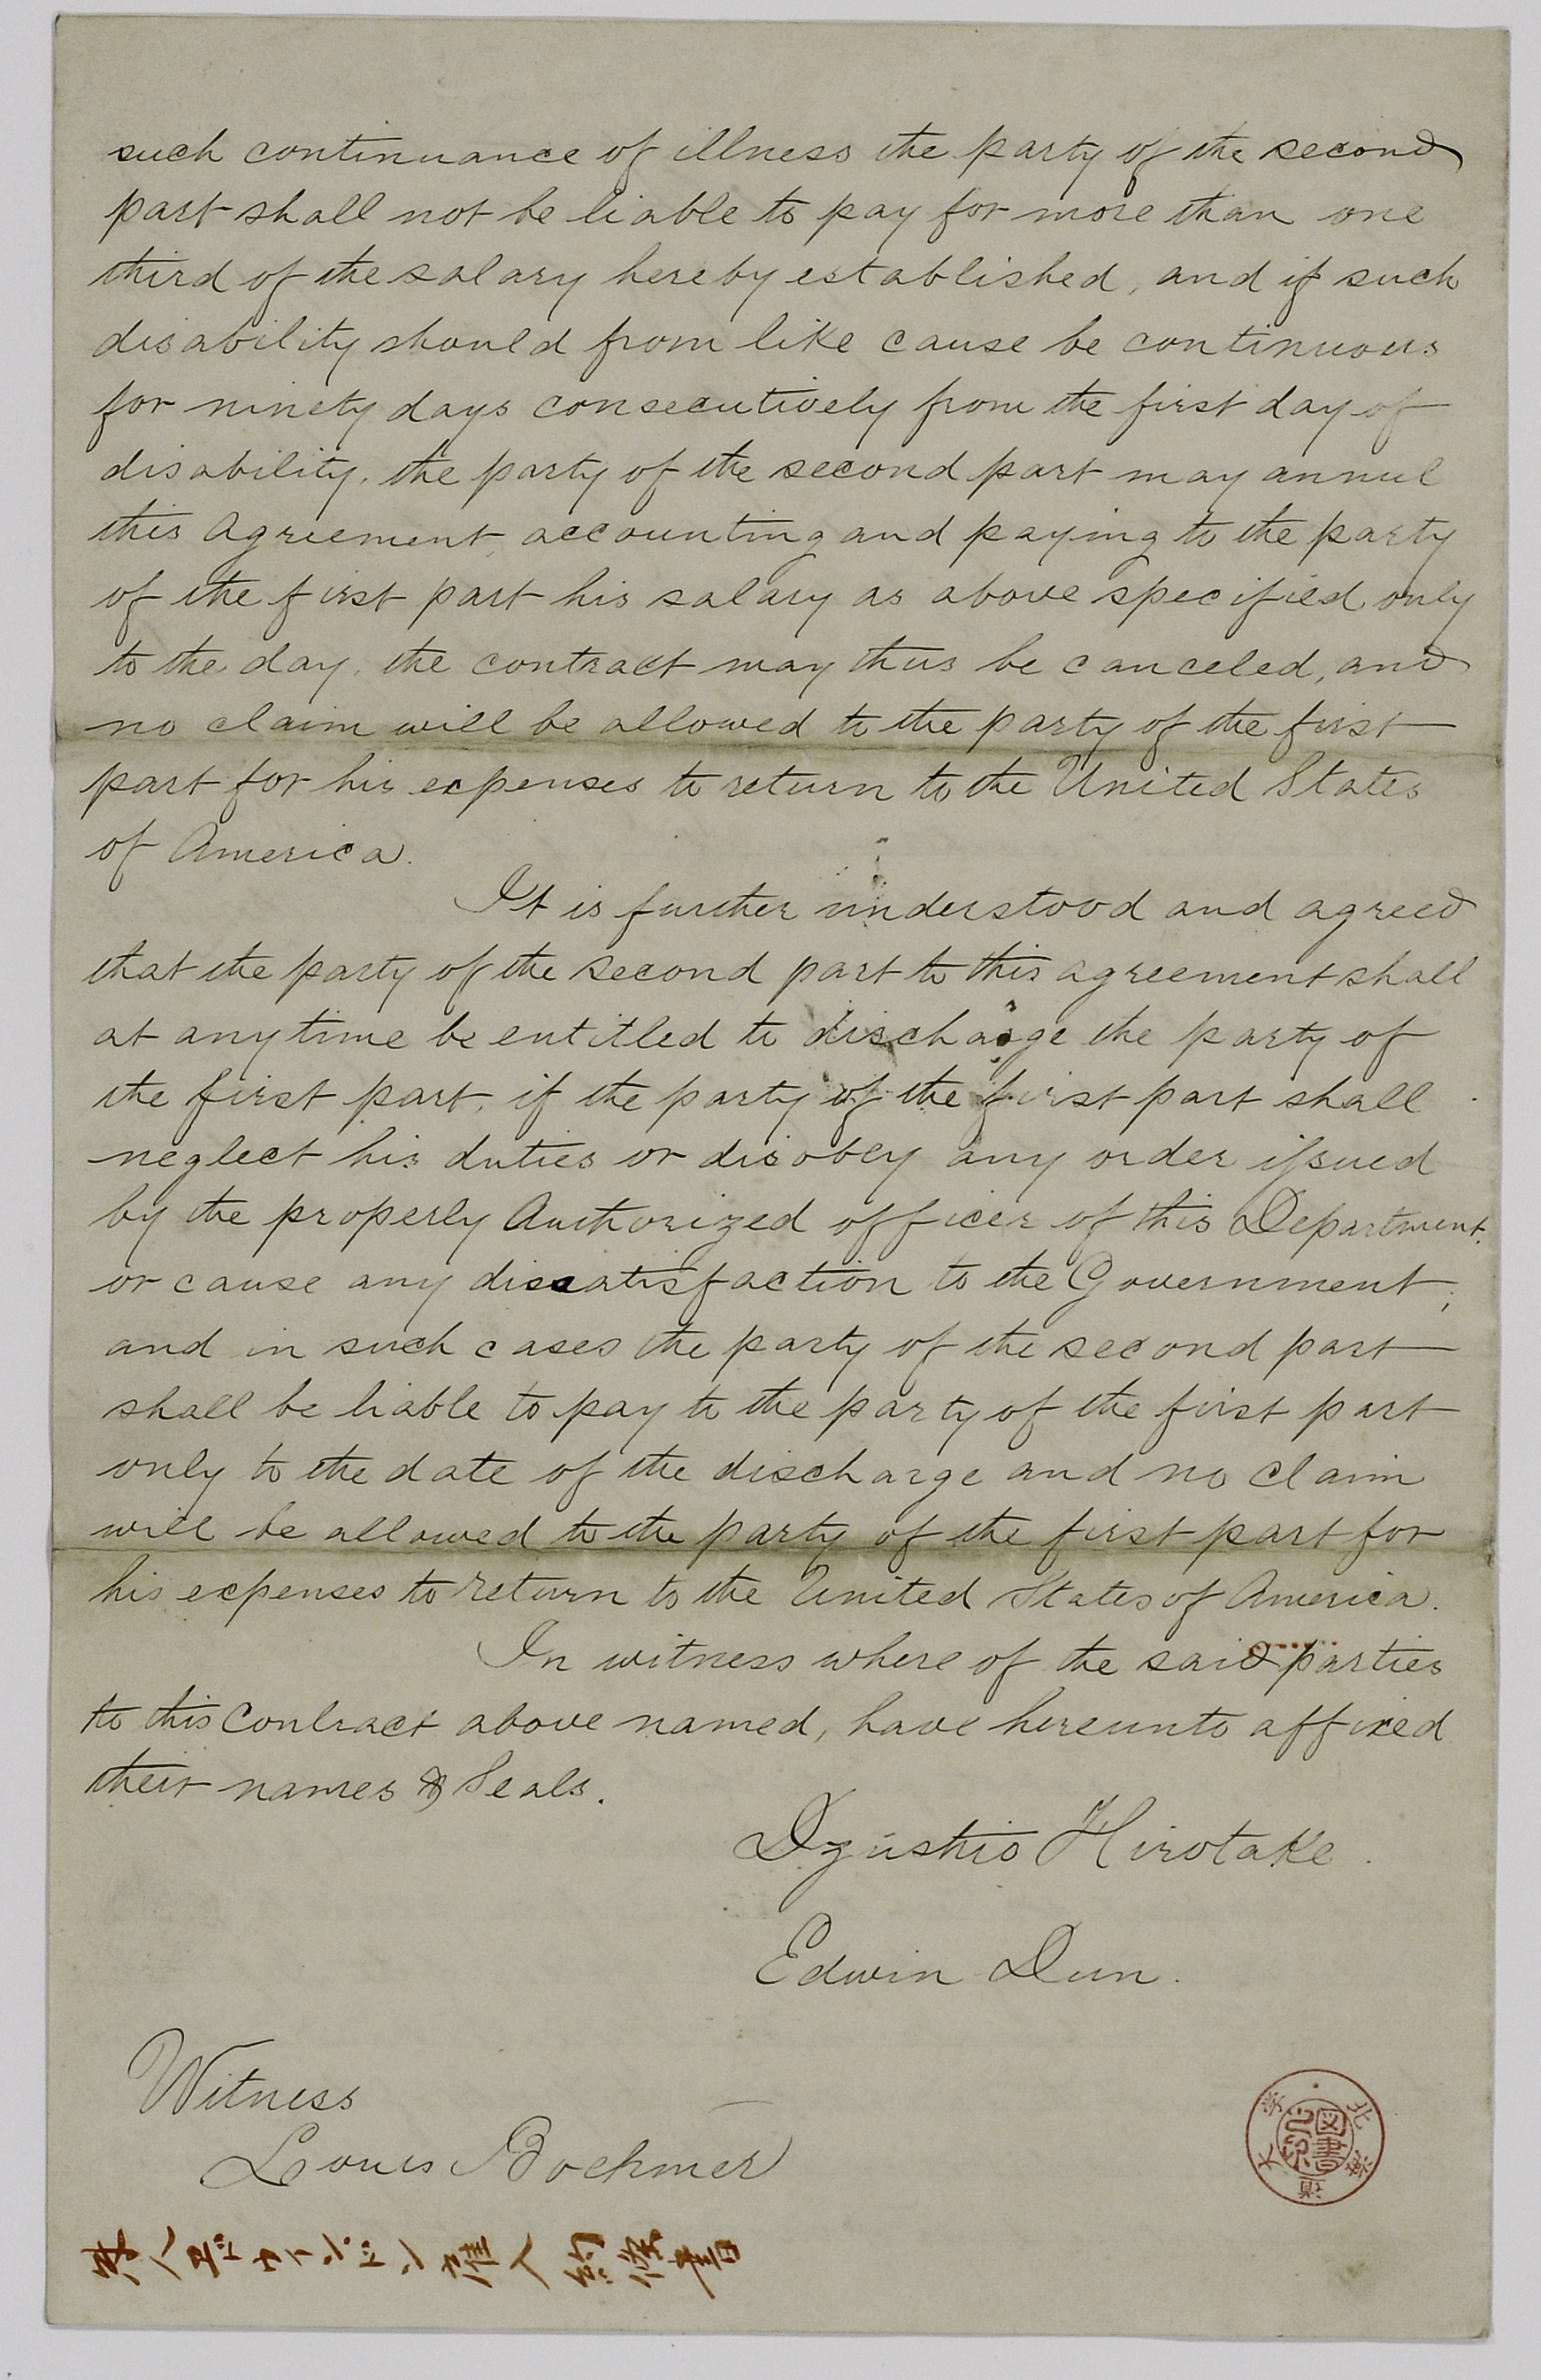 such continuance of illness the party of the second
part shall not be liable to pay for more than one
third of the salary hereby established, and if such
disability should from like cause be continuous
for ninety days consecutively from the first day of
disability, the party of the second part may annul
this Agreement accounting and paying to the party
of the first part his salary as above specified only
to the day, the contract may thus be canceled, and
no claim will be allowed to the party of the first
part for his expenses to return to the United States
of America.
It is further understood and agreed
that the party of the second part to this agreement shall
at any time be entitled to discharge the party of
the first part, if the party of the first part shall
neglect his duties or disobey any order issued
by the properly Authorized officer of this Department,
or cause any dissatisfaction to the Government;
and in such cases the party of the second part
shall be liable to pay to the party of the first part
only to the date of the discharge and no claim
will be allowed to the party of the first part for
his expenses to return to the United States of America.
In witness where of the said parties
to this Contract above named, have hereunto affixed
their names & Seals.
Dzushio Hirotake.
Edwin Dun.
Witness
Louis Boehmer
北海道大学
図書之印
人エドウインドン雇人約條書